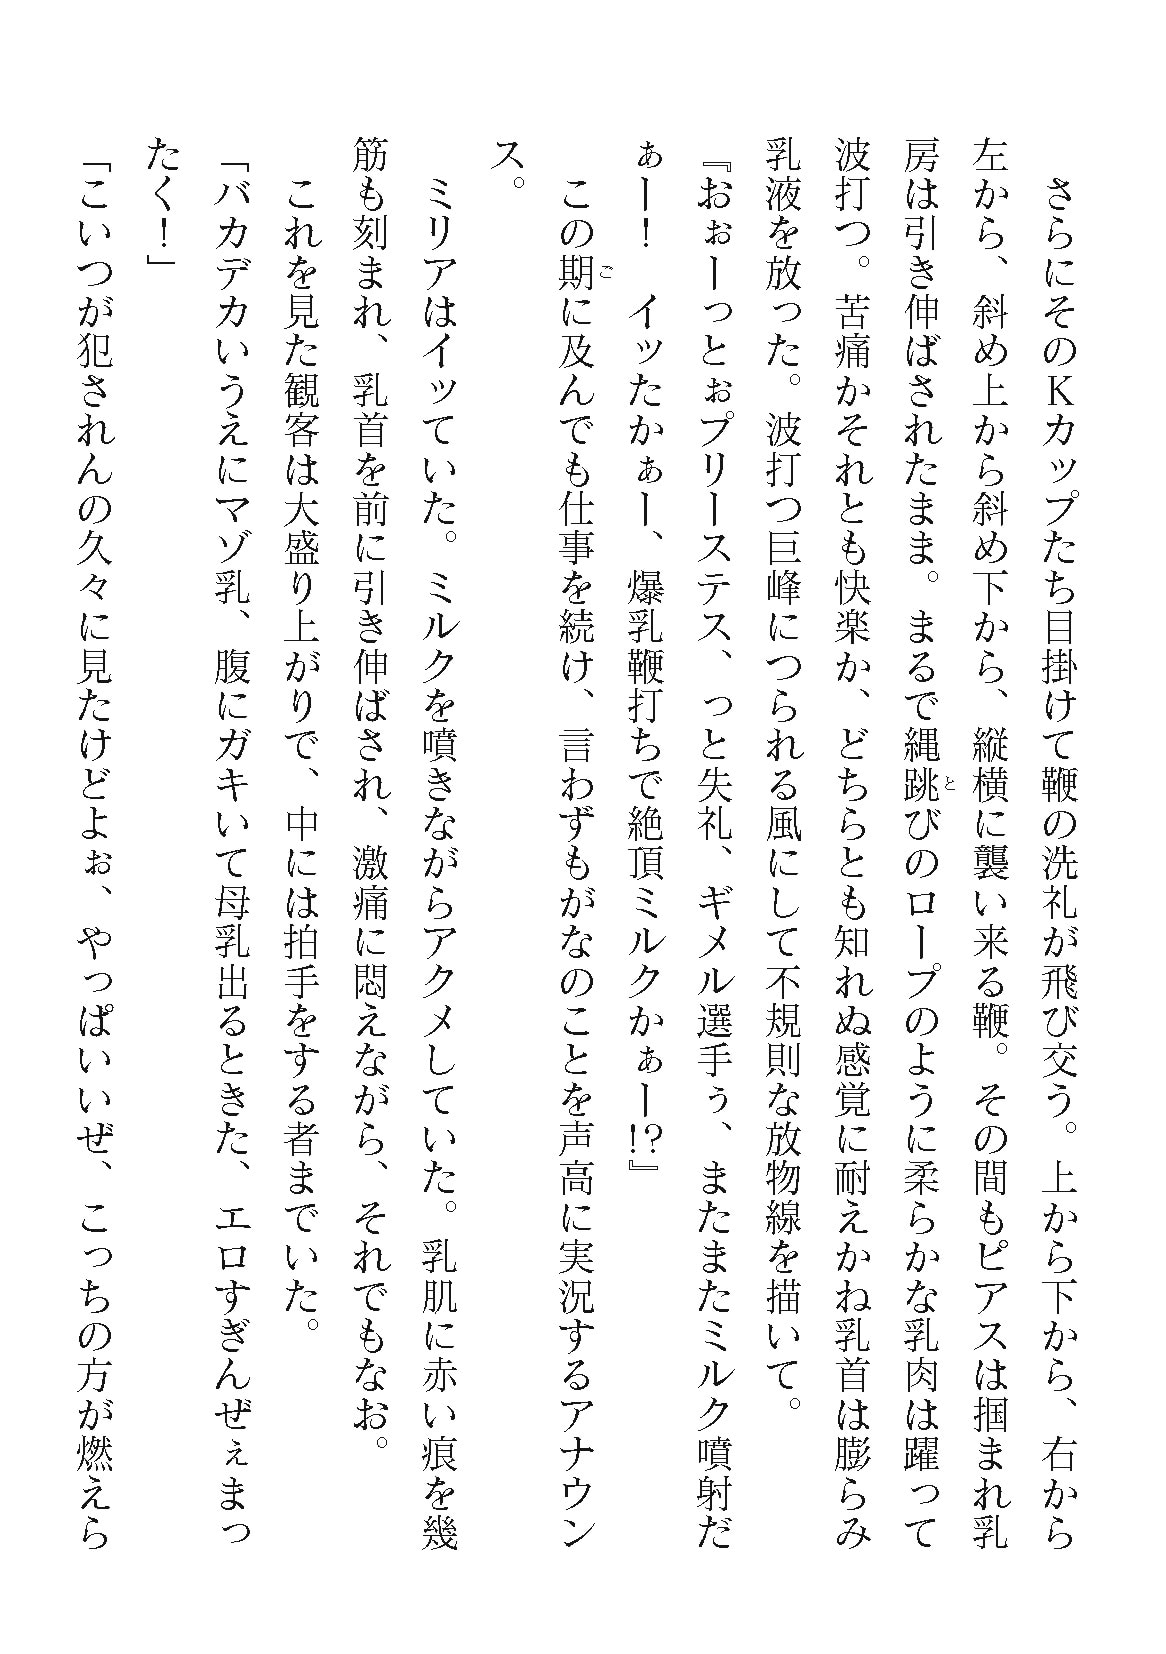 さらにそのKカップたち目掛けて鞭の洗礼が飛び交う。上から下から、右から
左から、斜め上から斜め下から、縦横に襲い来る鞭。その間もピアスは掴まれ乳
房は引き伸ばされたまま。まるで縄跳びのロープのように柔らかな乳肉は躍って
波打つ。苦痛かそれとも快楽か、どちらとも知れぬ感覚に耐えかね乳首は膨らみ
乳液を放った。波打つ巨峰につられる風にして不規則な放物線を描いて。
『おぉーっとぉプリーステス、っと失礼、ギメル選手ぅ、またまたミルク噴射だ
ぁー！　イッたかぁー、爆乳鞭打ちで絶頂ミルクかぁー!?』
この期に及んでも仕事を続け、言わずもがなのことを声高に実況するアナウン
ス。
ミリアはイッていた。ミルクを噴きながらアクメしていた。乳肌に赤い痕を幾
筋も刻まれ、乳首を前に引き伸ばされ、激痛に悶えながら、それでもなお。
これを見た観客は大盛り上がりで、中には拍手をする者までいた。
「バカデカいうえにマゾ乳、腹にガキいて母乳出るときた、エロすぎんぜぇまっ
たく！」
「こいつが犯されんの久々に見たけどよぉ、やっぱいいぜ、こっちの方が燃えら